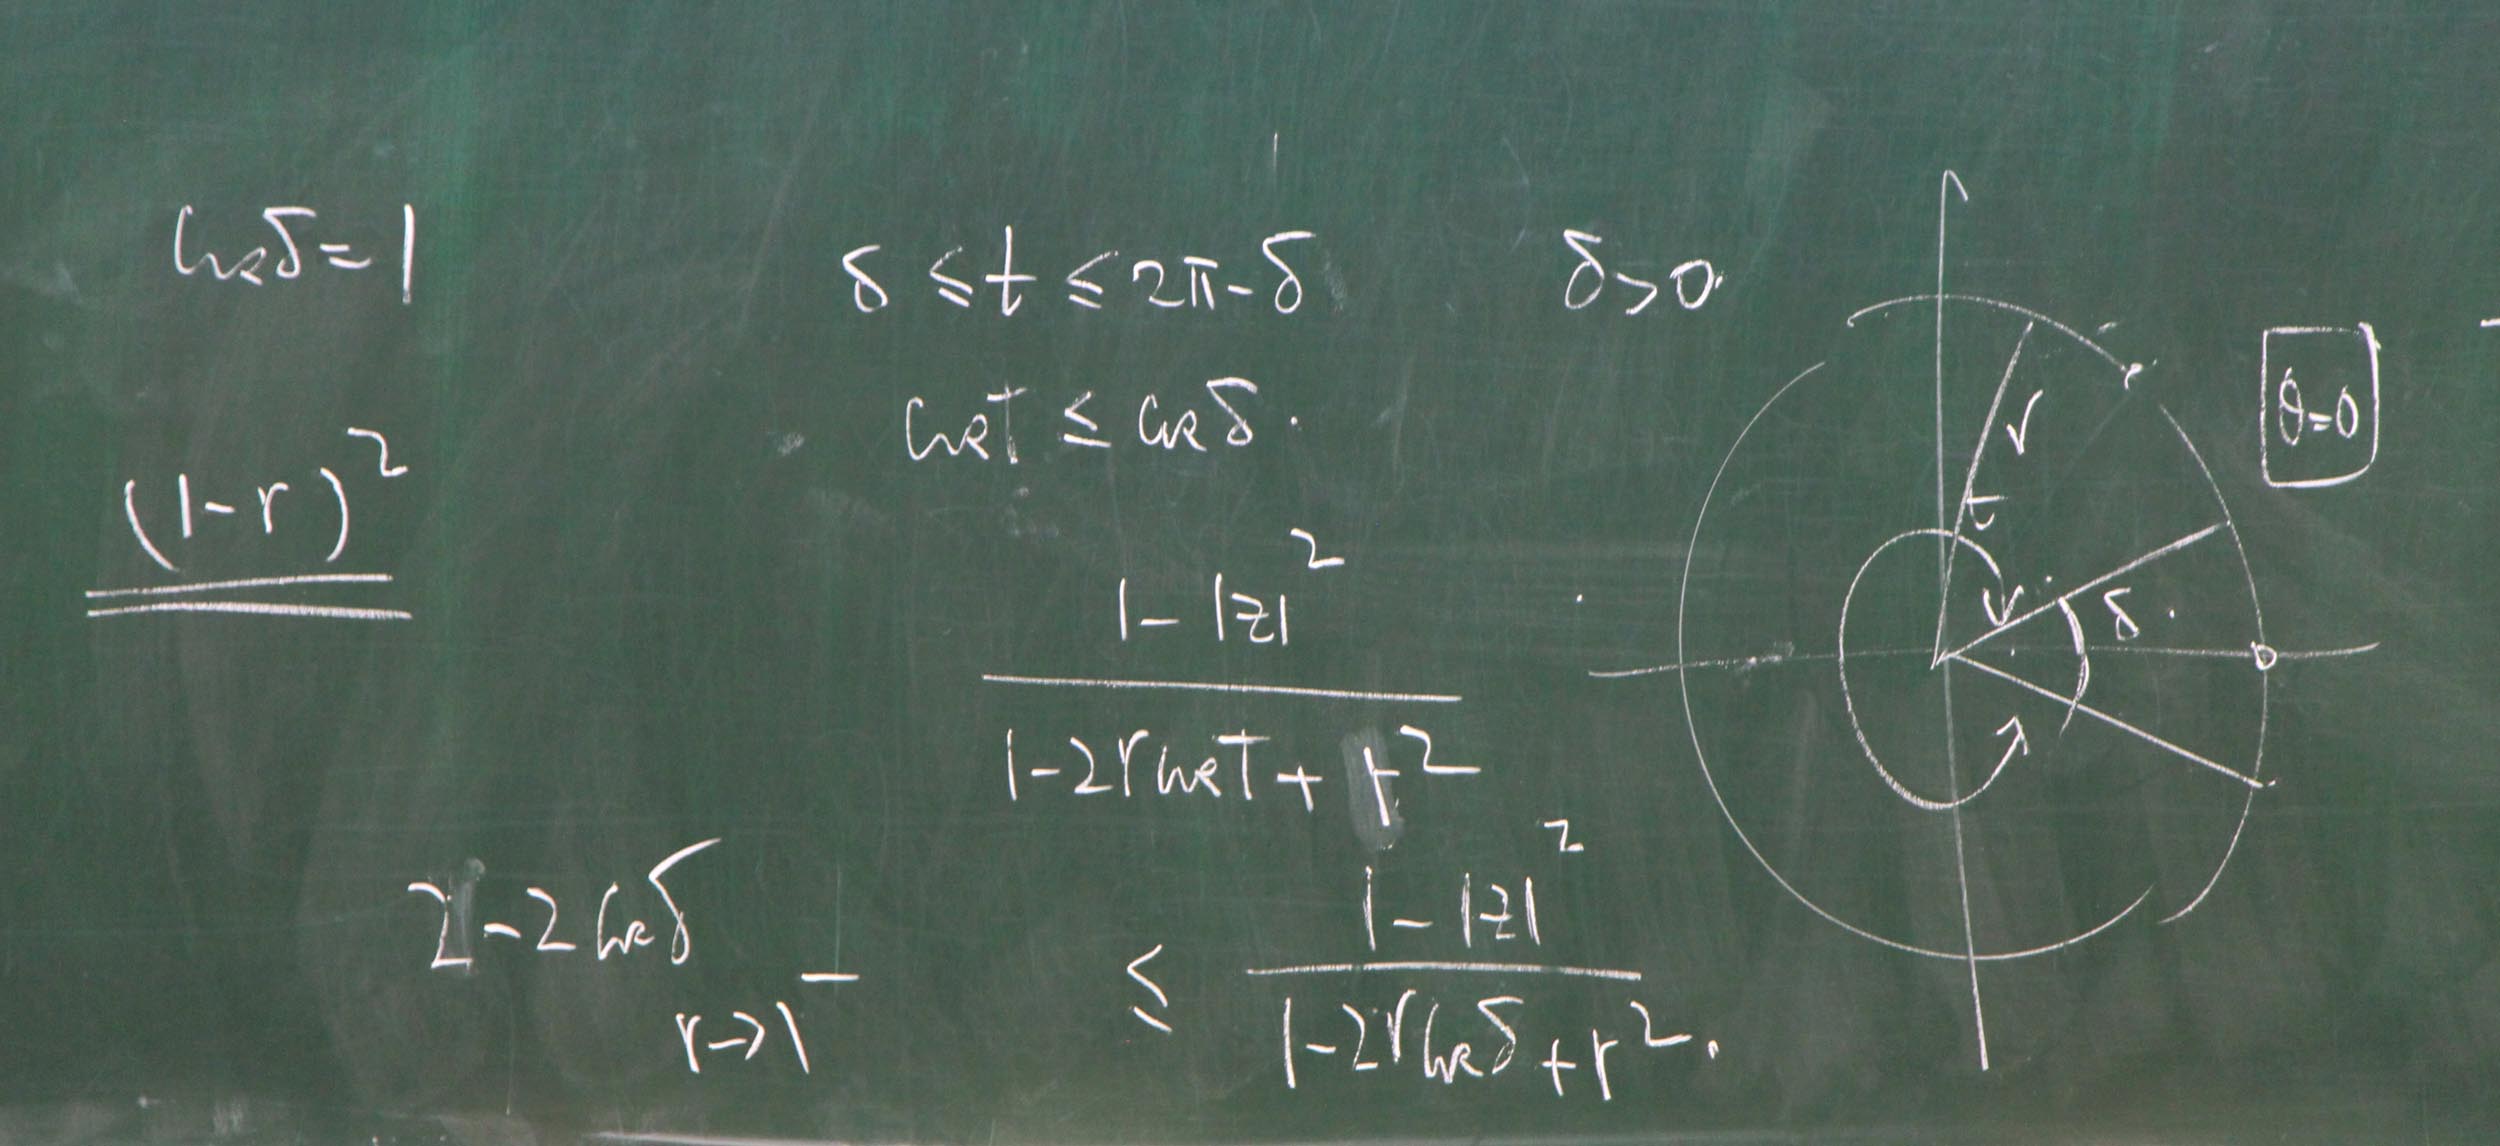 cos δ = 1
δ ≤ t ≤ 2π - δ   δ > 0.
cos t ≤ cos δ.
(1-r)²
1 - |z|²
1 - 2r cos t + r²
2 - 2 cos δ
r → 1⁻
≤ 1 - |z|²
1 - 2r cos δ + r².
r
t
r
δ.
θ = 0